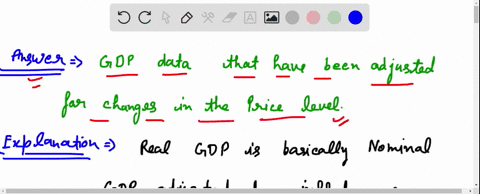 Answer => GDP data that have been adjusted
for changes in the Price level.
Explanation => Real GDP is basically Nominal
GDP adjusted